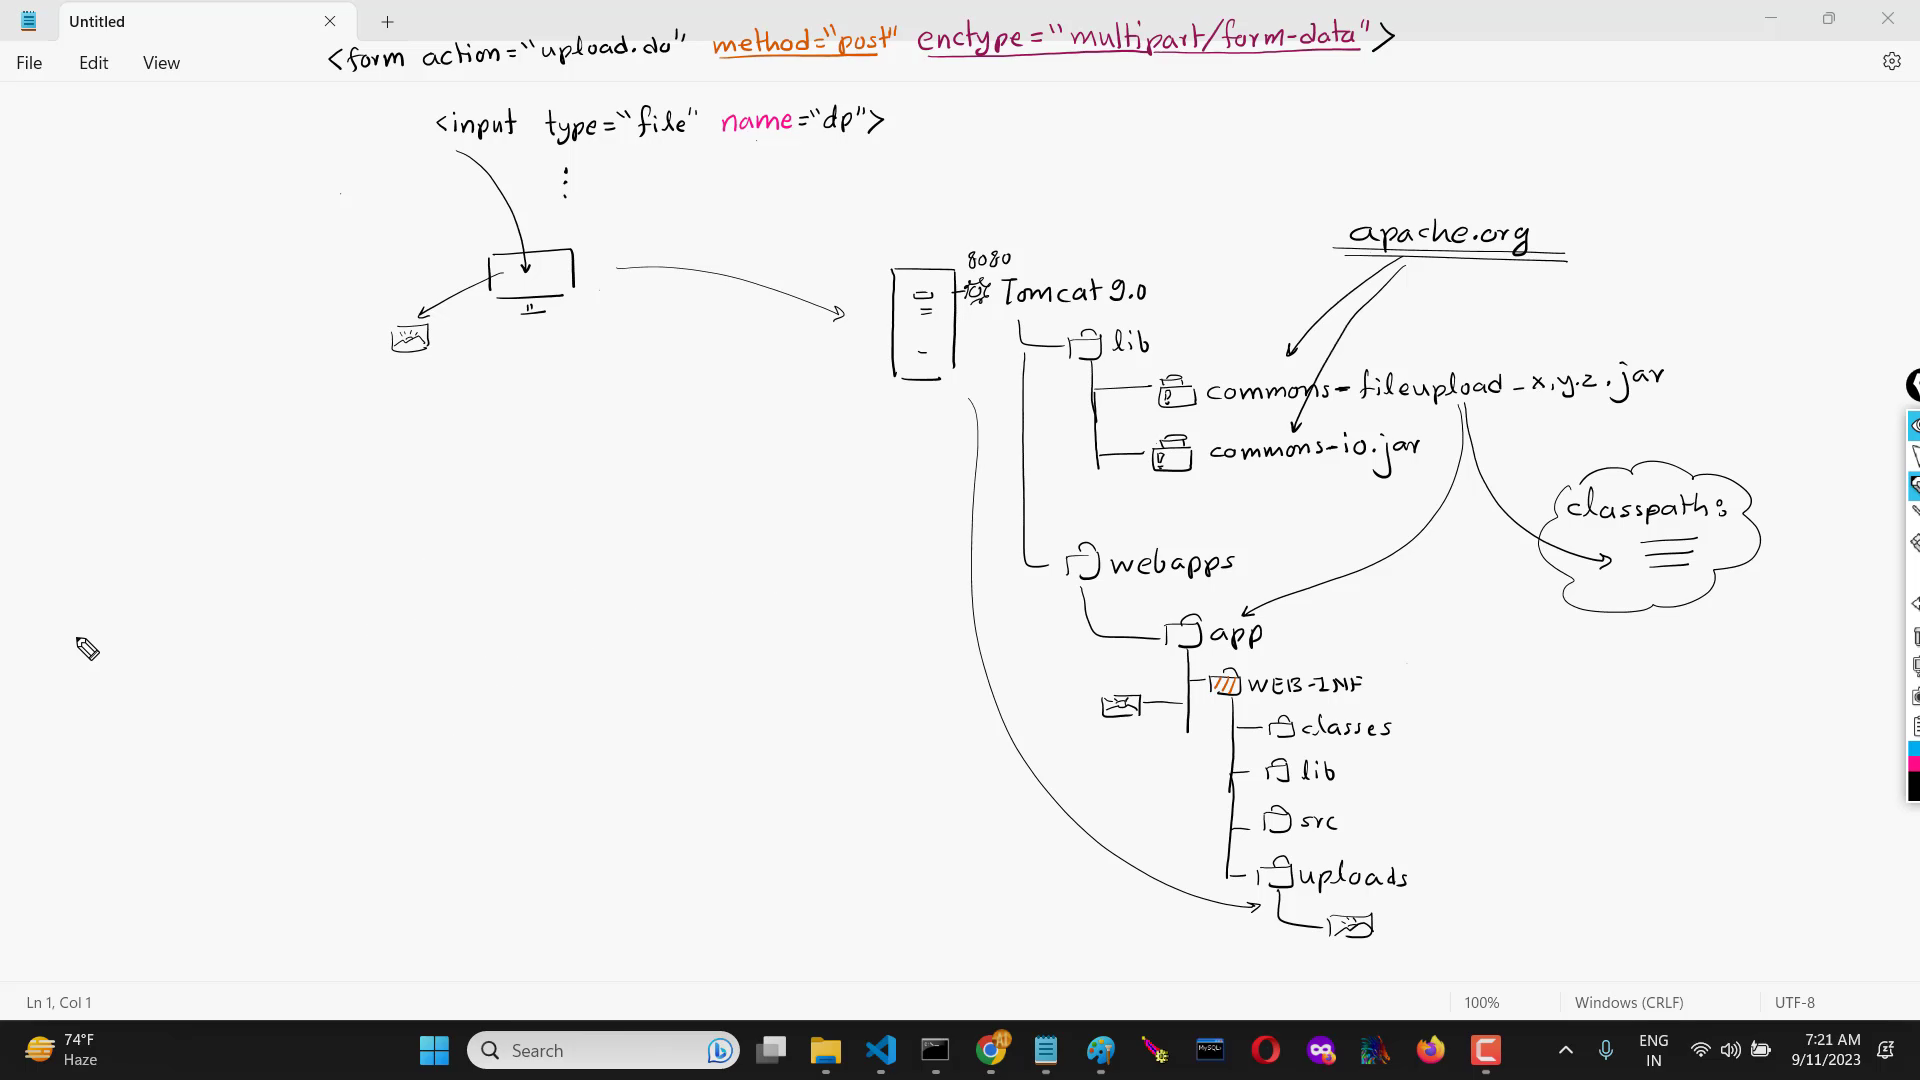 Untitled
<form action="upload.do" method="post" enctype="multipart/form-data">
File Edit View
<input type="file" name="dp">
apache.org
8080
Tomcat 9.0
lib
commons-fileupload-x.y.z.jar
commons-io.jar
classpath:
webapps
app
WEB-INF
classes
lib
src
uploads
Ln 1, Col 1 100% Windows (CRLF) UTF-8
74°F
Haze
Search
MySQL
ENG
IN
7:21 AM
9/11/2023